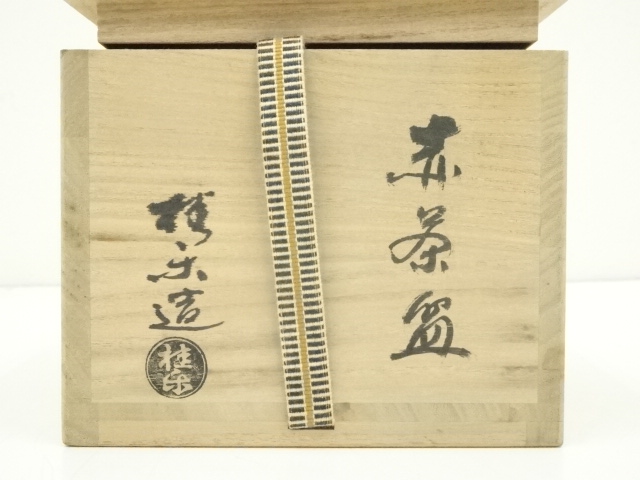 赤茶盌
桂楽造
桂楽